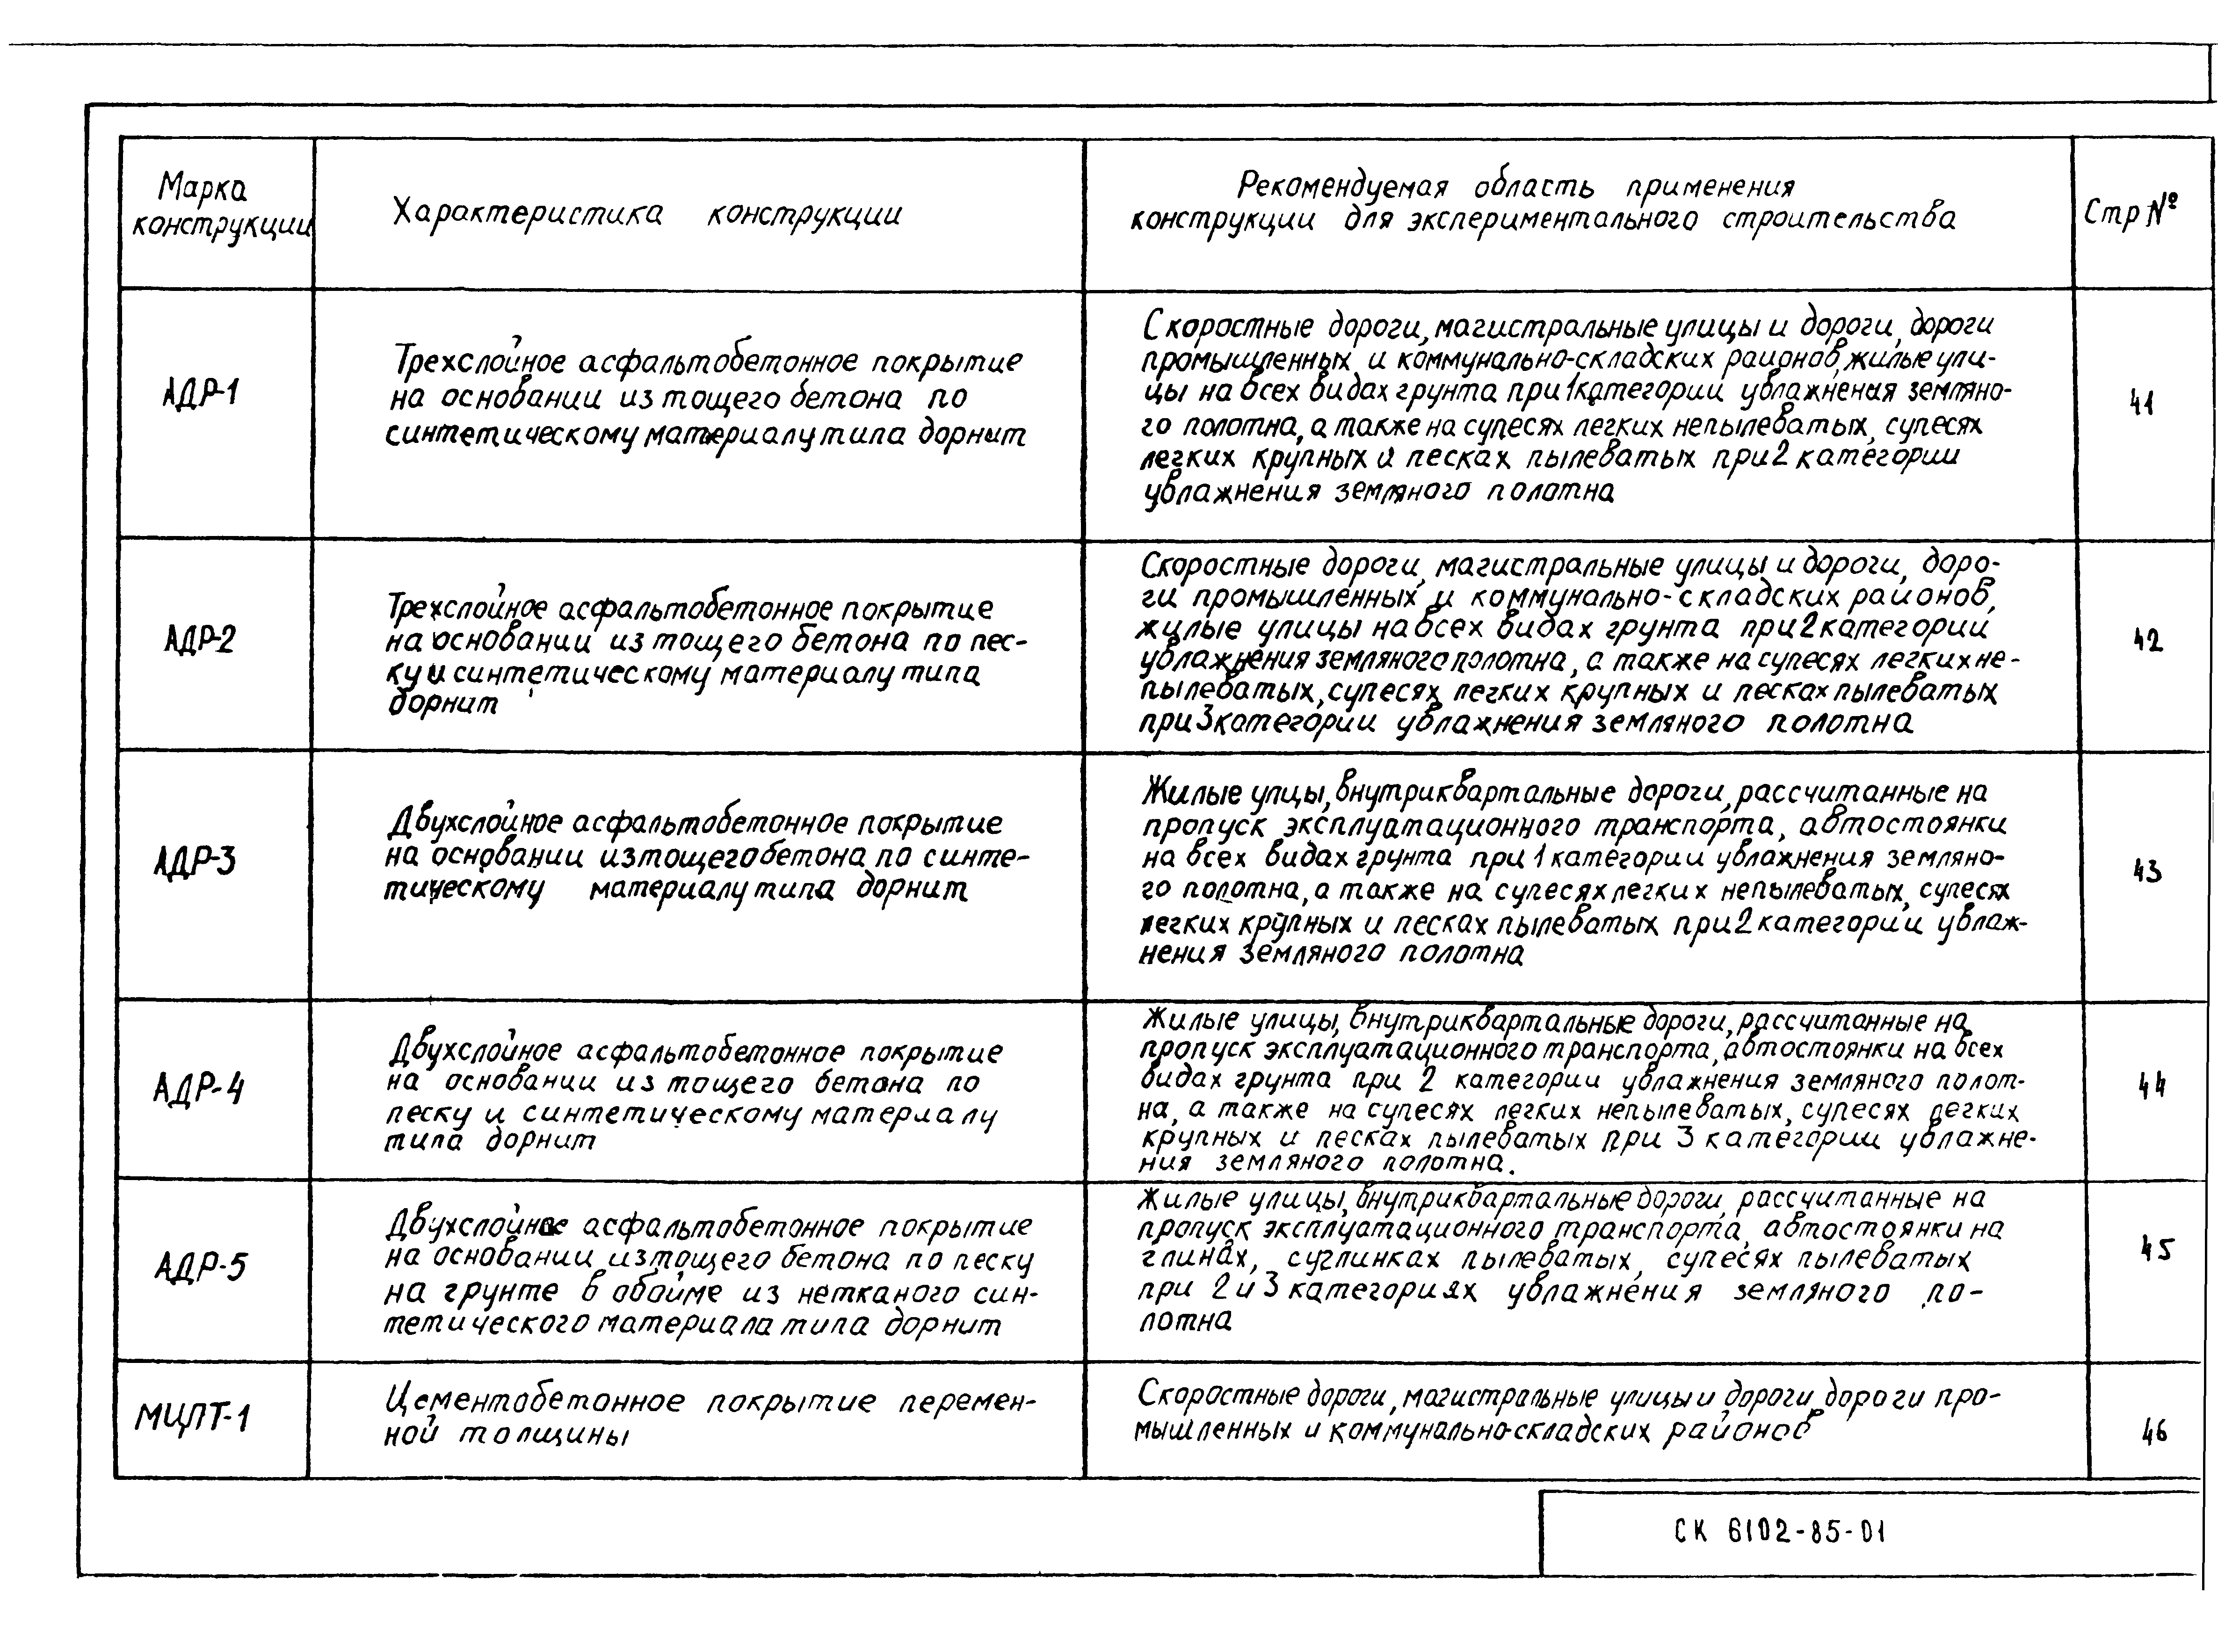 Марка
конструкции
Характеристика конструкции
Рекомендуемая область применения
конструкции для экспериментального строительства
Стр №
АДР-1
Трехслойное асфальтобетонное покрытие
на основании из тощего бетона по
синтетическому материалу типа дорнит
Скоростные дороги, магистральные улицы и дороги, дороги
промышленных и коммунально-складских районов, жилые ули-
цы на всех видах грунта при 1 категории увлажнения земляно-
го полотна, а также на супесях легких непылеватых, супесях
легких крупных и песках пылеватых при 2 категории
увлажнения земляного полотна
41
АДР-2
Трехслойное асфальтобетонное покрытие
на основании из тощего бетона по пес-
ку и синтетическому материалу типа
дорнит
Скоростные дороги, магистральные улицы и дороги, доро-
ги промышленных и коммунально-складских районов,
жилые улицы на всех видах грунта при 2 категории
увлажнения земляного полотна, а также на супесях легких не-
пылеватых, супесях легких крупных и песках пылеватых
при 3 категории увлажнения земляного полотна
42
АДР-3
Двухслойное асфальтобетонное покрытие
на основании из тощего бетона по синте-
тическому материалу типа дорнит
Жилые улцы, внутриквартальные дороги, рассчитанные на
пропуск эксплуатационного транспорта, автостоянки
на всех видах грунта при 1 категории увлажнения земляно-
го полотна, а также на супесях легких непылеватых, супесях
легких крупных и песках пылеватых при 2 категории увлаж-
нения земляного полотна
43
АДР-4
Двухслойное асфальтобетонное покрытие
на основании из тощего бетона по
песку и синтетическому материалу
типа дорнит
Жилые улицы, внутриквартальные дороги, рассчитанные на
пропуск эксплуатационного транспорта, автостоянки на всех
видах грунта при 2 категории увлажнения земляного полот-
на, а также на супесях легких непылеватых, супесях легких
крупных и песках пылеватых при 3 категории увлажне-
ния земляного полотна.
44
АДР-5
Двухслойное асфальтобетонное покрытие
на основании из тощего бетона по песку
на грунте в обойме из нетканого син-
тетического материала типа дорнит
Жилые улицы, внутриквартальные дороги, рассчитанные на
пропуск эксплуатационного транспорта, автостоянки на
глинах, суглинках пылеватых, супесях пылеватых
при 2 и 3 категориях увлажнения земляного по-
лотна
45
МЦПТ-1
Цементобетонное покрытие перемен-
ной толщины
Скоростные дороги, магистральные улицы и дороги, дороги про-
мышленных и коммунально-складских районов
46
СК 6102-85-01